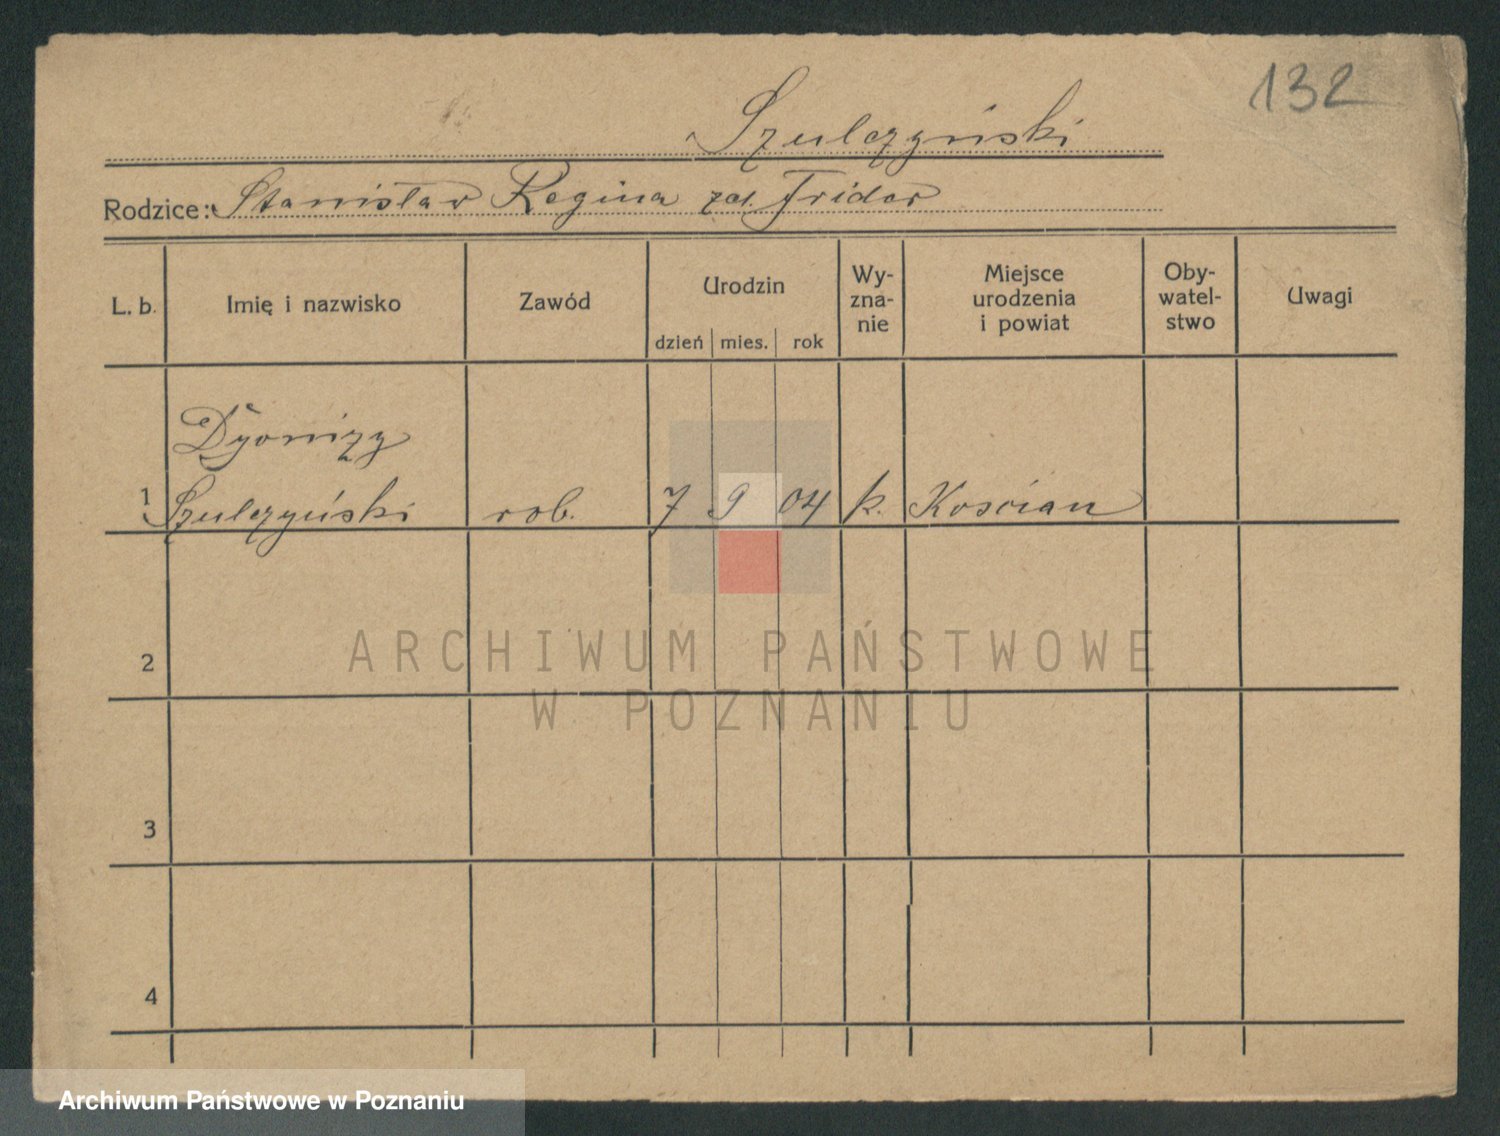 132
Szulczyński
Rodzice: Stanisław Regina zd. Fridor
L. b. Imię i nazwisko Zawód Urodzin dzień mies. rok Wy-zna-nie Miejsce urodzenia i powiat Oby-watel-stwo Uwagi
Dyonizy
1 Szulczyński rob. 7 9 04 k. Kościan
2
ARCHIWUM PAŃSTWOWE
W POZNANIU
3
4
Archiwum Państwowe w Poznaniu